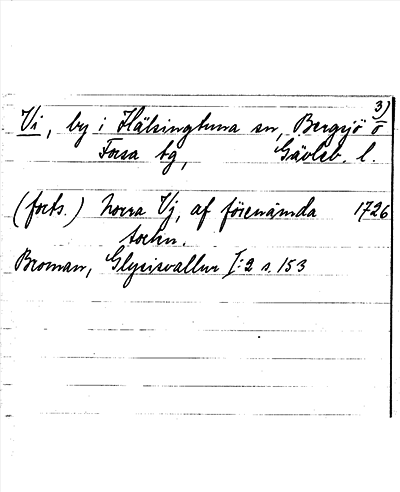 3)
Vi, by i Hälsingtuna sn, Bergsjö o
Forsa tg, Gävleb. l.
(forts.) Norra Vj, af förenämda 1726
sochn.
Broman, Glysisvallur I:2 s. 153